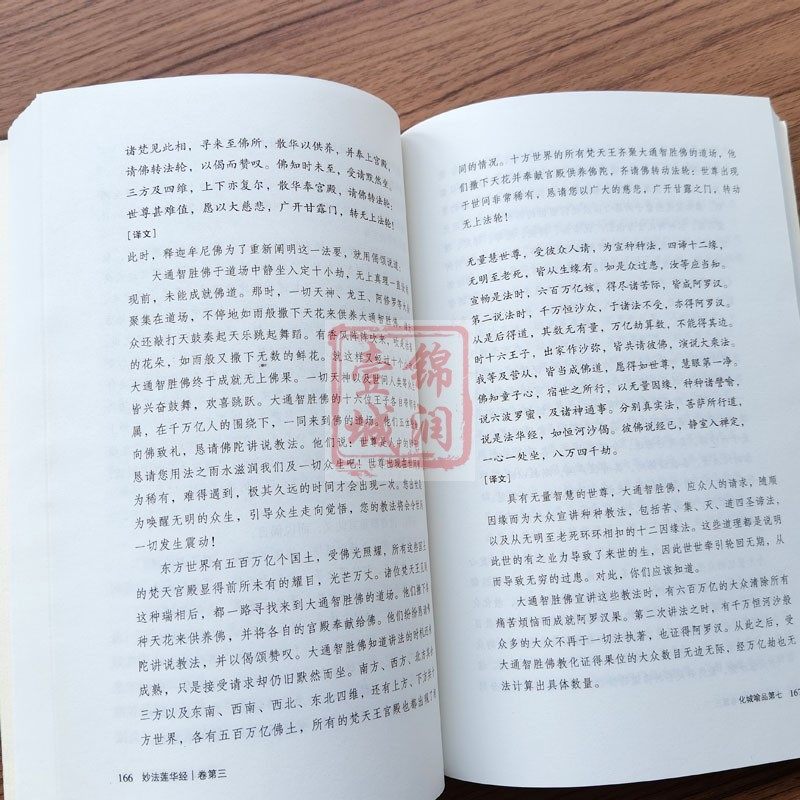 诸梵见此相，寻来至佛所，散华以供养，并奉上宫殿，
请佛转法轮，以偈而赞叹。佛知时未至，受请默然坐，
三方及四维，上下亦复尔，散华奉宫殿，请佛转法轮：
世尊甚难值，愿以大慈悲，广开甘露门，转无上法轮！
[译文]
此时，释迦牟尼佛为了重新阐明这一法要，就用偈颂说道：
大通智胜佛于道场中静坐入定十小劫，无上真理一直
现前，未能成就佛道。那时，一切天神、龙王、阿修罗等大
聚集在道场，不停地如雨般撒下天花来供养大通智胜佛。
众还敲打天鼓奏起天乐跳起舞蹈。有香风阵阵吹来，
的花朵，如雨般又撒下无数的鲜花。就这样又经过十个
大通智胜佛终于成就无上佛果。一切天神以及世间人类等
皆兴奋鼓舞，欢喜跳跃。大通智胜佛的十六位王子各自
属，在千万亿人的围绕下，一同来到佛的道场。他们五体
向佛致礼，恳请佛陀讲说教法。他们说：世尊是人中的
恳请您用法之雨水滋润我们及一切众生吧！世尊出现在世
为稀有，难得遇到，极其久远的时间才会出现一次。您出世
为唤醒无明的众生，引导众生走向觉悟，您的教法将会令世
一切发生震动！
东方世界有五百万亿个国土，受佛光照耀，所有这些国土
的梵天宫殿显得前所未有的耀目，光芒万丈。诸位梵天王见到
这种瑞相后，都一路寻找来到大通智胜佛的道场。他们撒下
种天花来供养佛，并将各自的宫殿奉献给佛。他们纷纷恳请
陀讲说教法，并以偈颂赞叹。大通智胜佛知道讲法的时机
成熟，只是接受请求却仍旧默然而坐。南方、西方、北方
三方以及东南、西南、西北、东北四维，还有上方、下方共
方世界，各有五百万亿佛土，所有的梵天王宫殿也都出现了
166 妙法莲华经|卷第三
同的情况。十方世界的所有梵天王齐聚大通智胜佛的道场，他
们撒下天花并奉献宫殿供养佛陀，齐请佛转动法轮：世尊出现
于世间非常稀有，恳请您以广大的慈悲，广开甘露之门，转动
无上法轮！
无量慧世尊，受彼众人请，为宣种种法，四谛十二缘，
无明至老死，皆从生缘有。如是众过患，汝等应当知。
宣畅是法时，六百万亿姟，得尽诸苦际，皆成阿罗汉。
第二说法时，千万恒沙众，于诸法不受，亦得阿罗汉。
从是后得道，其数无有量，万亿劫算数，不能得其边。
时十六王子，出家作沙弥，皆共请彼佛，演说大乘法。
我等及营从，皆当成佛道，愿得如世尊，慧眼第一净。
佛知童子心，宿世之所行，以无量因缘，种种诸譬喻，
说六波罗蜜，及诸神通事。分别真实法，菩萨所行道，
说是法华经，如恒河沙偈。彼佛说经已，静室入禅定，
一心一处坐，八万四千劫。
[译文]
具有无量智慧的世尊，大通智胜佛，应众人的请求，随顺
因缘而为大众宣讲种种教法，包括苦、集、灭、道四圣谛法，
以及从无明至老死环环相扣的十二因缘法。这些道理都是说明
此世的有之业力导致了来世的生，因此世世牵引轮回无期，从
而导致无穷的过患。对此，你们应该知道。
大通智胜佛宣讲这些教法时，有六百万亿的大众清除所有
痛苦烦恼而成就阿罗汉果。第二次讲法之时，有千万恒河沙般
众多的大众不再于一切法执著，也证得阿罗汉。从此之后，受
大通智胜佛教化证得果位的大众数目无边无际，经万亿劫也无
法计算出具体数量。
化城喻品第七 167
锦润
壹城